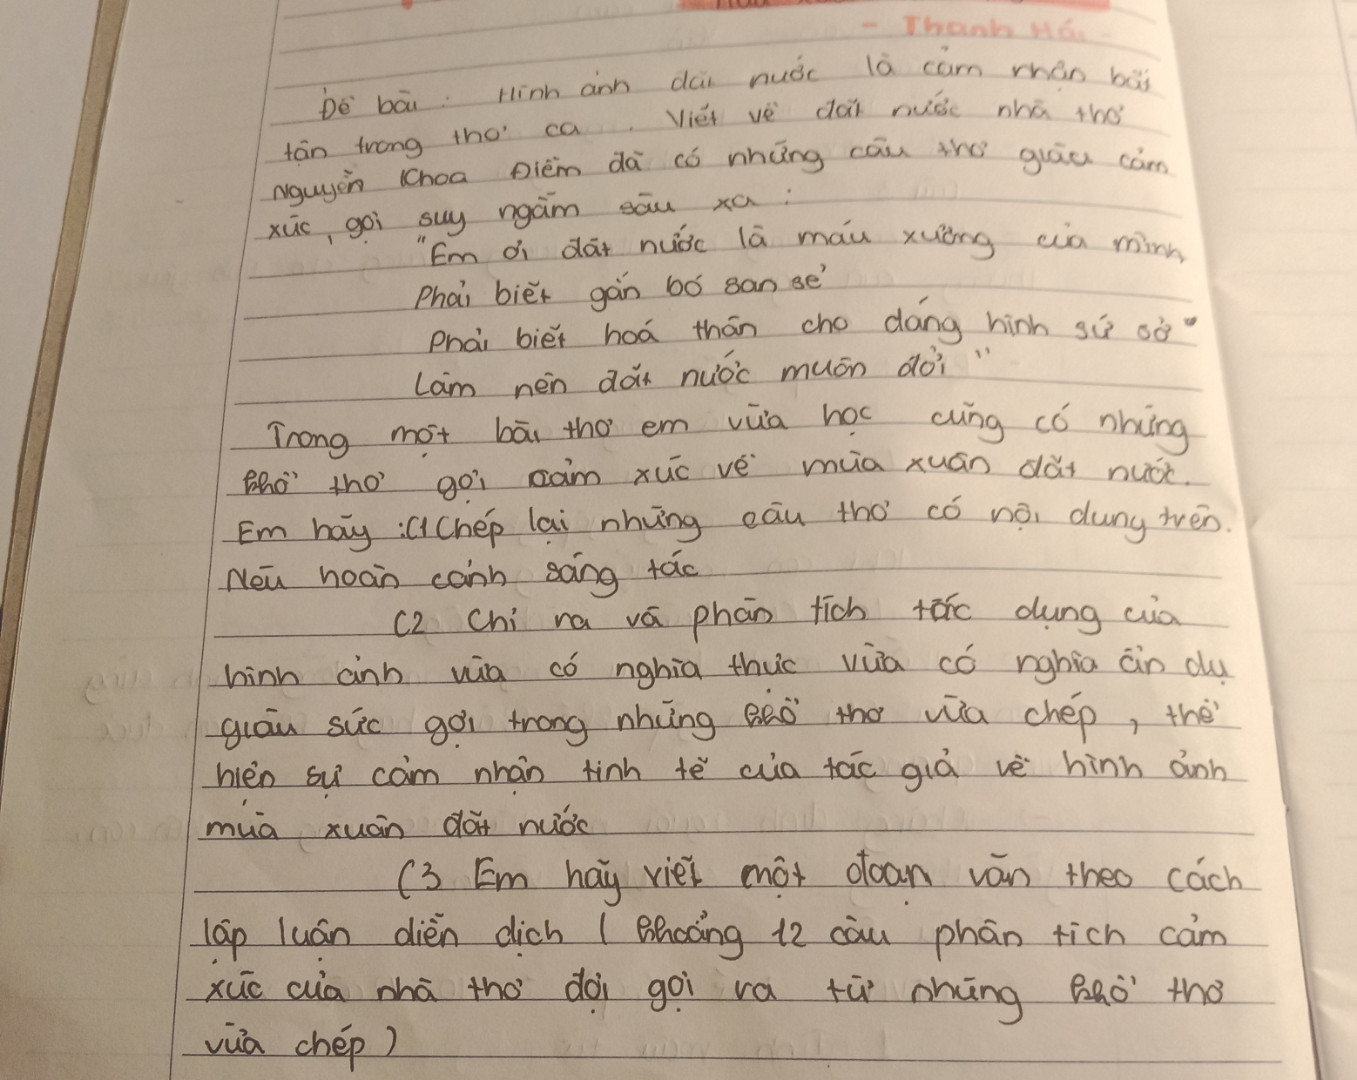 - Thanh Hải -
Đề bài: Hình ảnh đất nước là cảm nhận bất
tận trong thơ ca. Viết về đất nước nhà thơ
Nguyễn Khoa Điềm đã có những câu thơ giàu cảm
xúc, gợi suy ngẫm sâu xa:
"Em ơi đất nước là máu xương của mình
Phải biết gắn bó san sẻ
Phải biết hoá thân cho dáng hình sứ sở
Làm nên đất nước muôn đời"
Trong một bài thơ em vừa học cũng có những
khổ thơ gợi cảm xúc về mùa xuân đất nước.
Em hãy: C1 Chép lại những câu thơ có nội dung trên.
Nêu hoàn cảnh sáng tác
C2 Chỉ ra và phân tích tác dụng của
hình ảnh vừa có nghĩa thực vừa có nghĩa ẩn dụ
giàu sức gợi trong những khổ thơ vừa chép, thể
hiện sự cảm nhận tinh tế của tác giả về hình ảnh
mùa xuân đất nước
C3 Em hãy viết một đoạn văn theo cách
lập luận diễn dịch (khoảng 12 câu phân tích cảm
xúc của nhà thơ đợi gợi ra từ những khổ thơ
vừa chép)